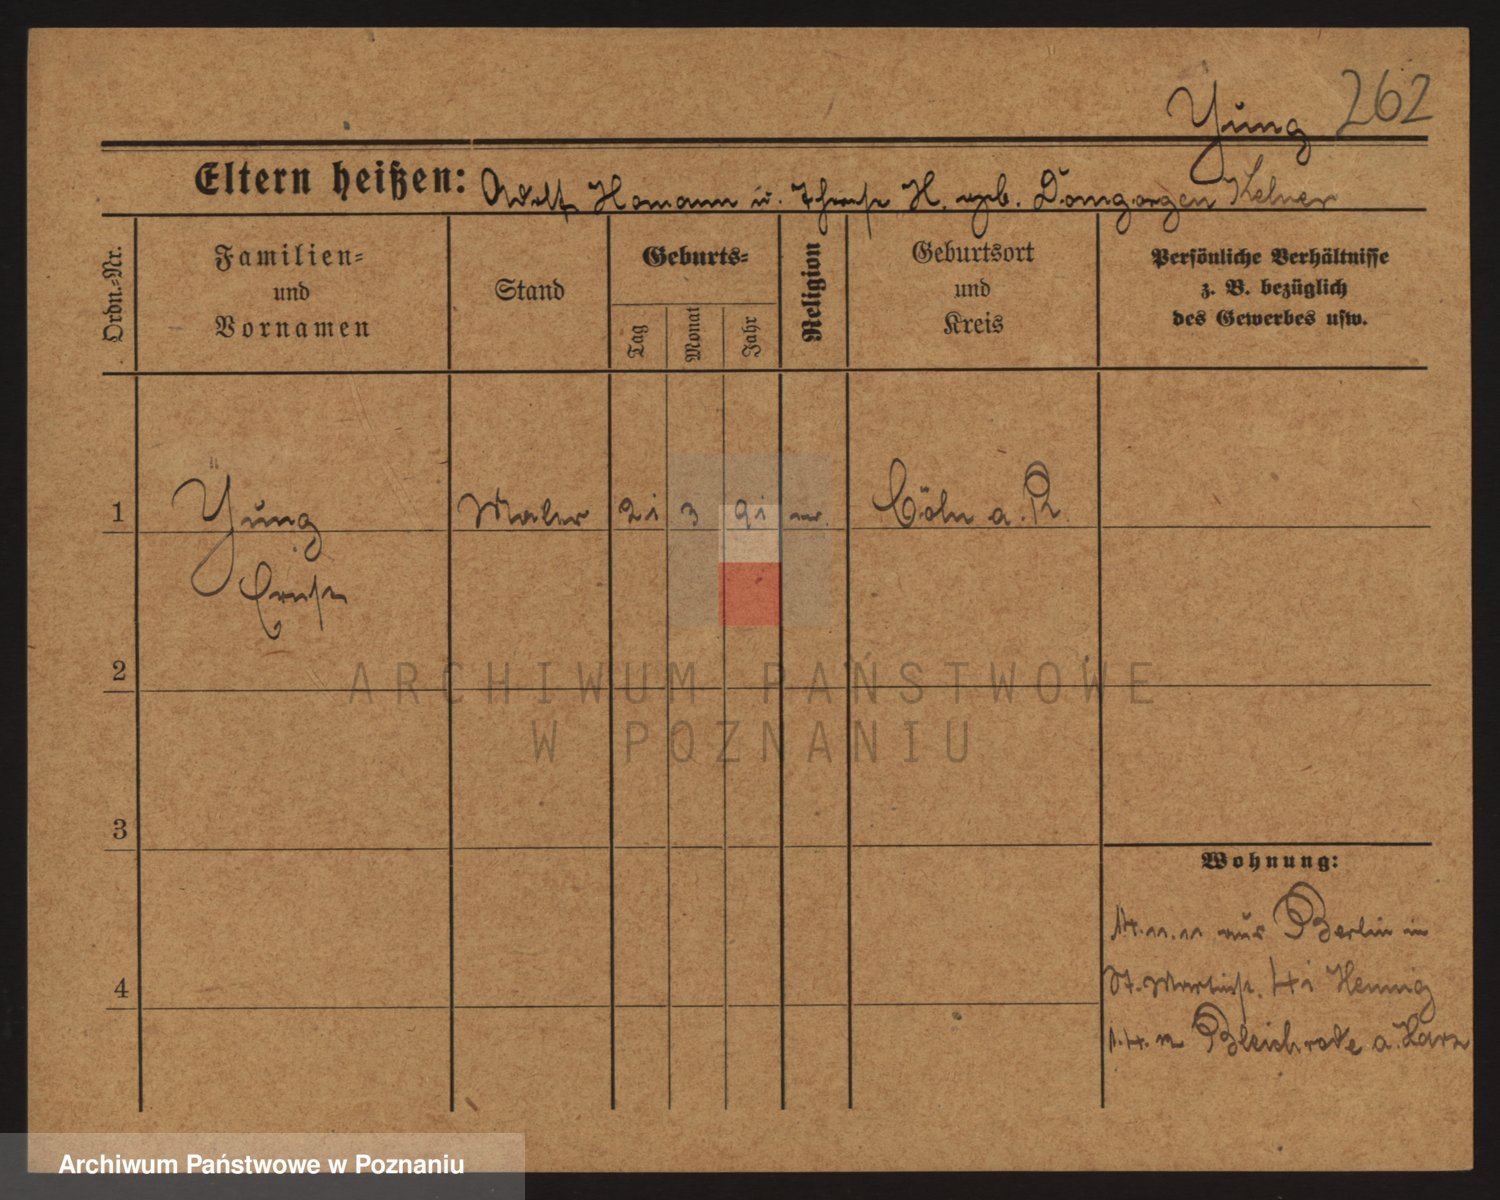 Yung 262
Eltern heißen: Adolf Homann u. H. geb. Domgorgen Kelner
Ordn.-Nr.
Familien-
und
Vornamen
Stand
Geburts-
Tag
Monat
Jahr
Religion
Geburtsort
und
Kreis
Persönliche Verhältnisse
z. B. bezüglich
des Gewerbes usw.
1 Yung Maler 21 3 91 Cöln a. R
Ernst
2
ARCHIWUM PAŃSTWOWE
W POZNANIU
3
Wohnung:
14.11.11 aus Berlin in
St. Martinstr. 41 Hennig
1.4.12 Bleichrode a. Harz
4
Archiwum Państwowe w Poznaniu